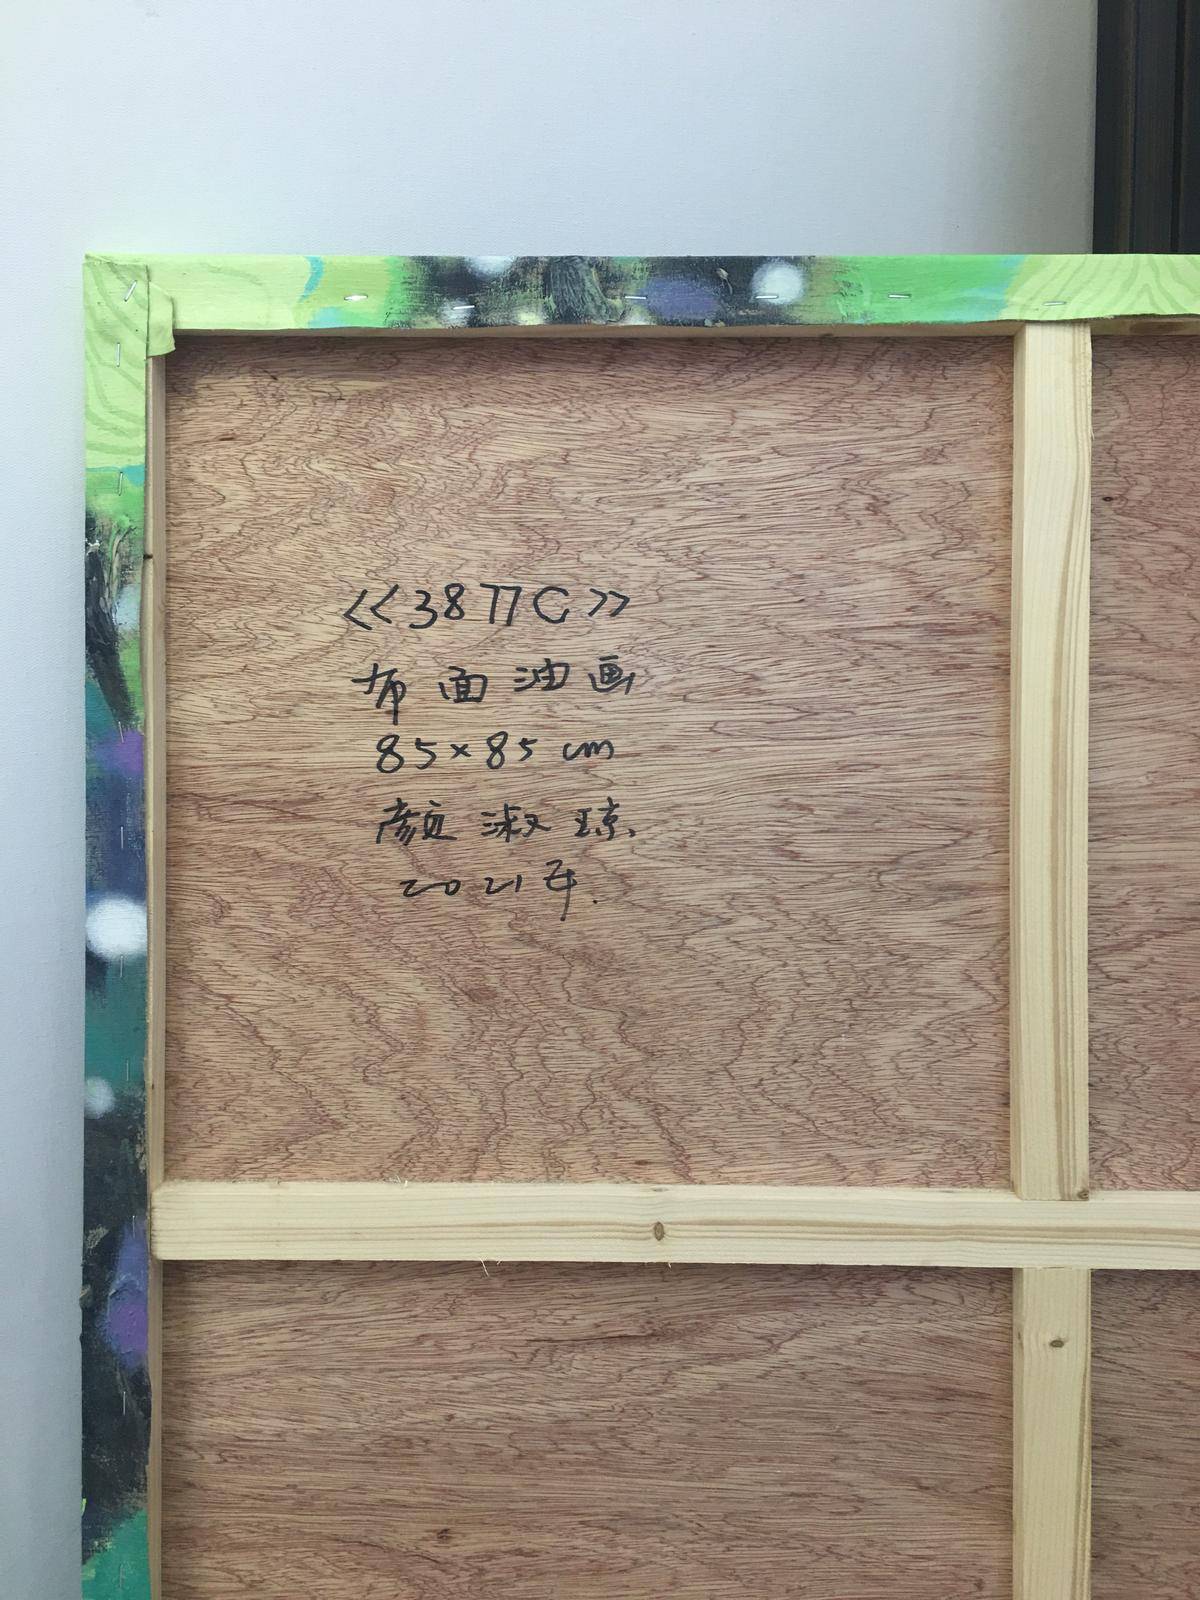 <<3877C>>
布面油画
85×85cm
颜淑琼.
2021年.